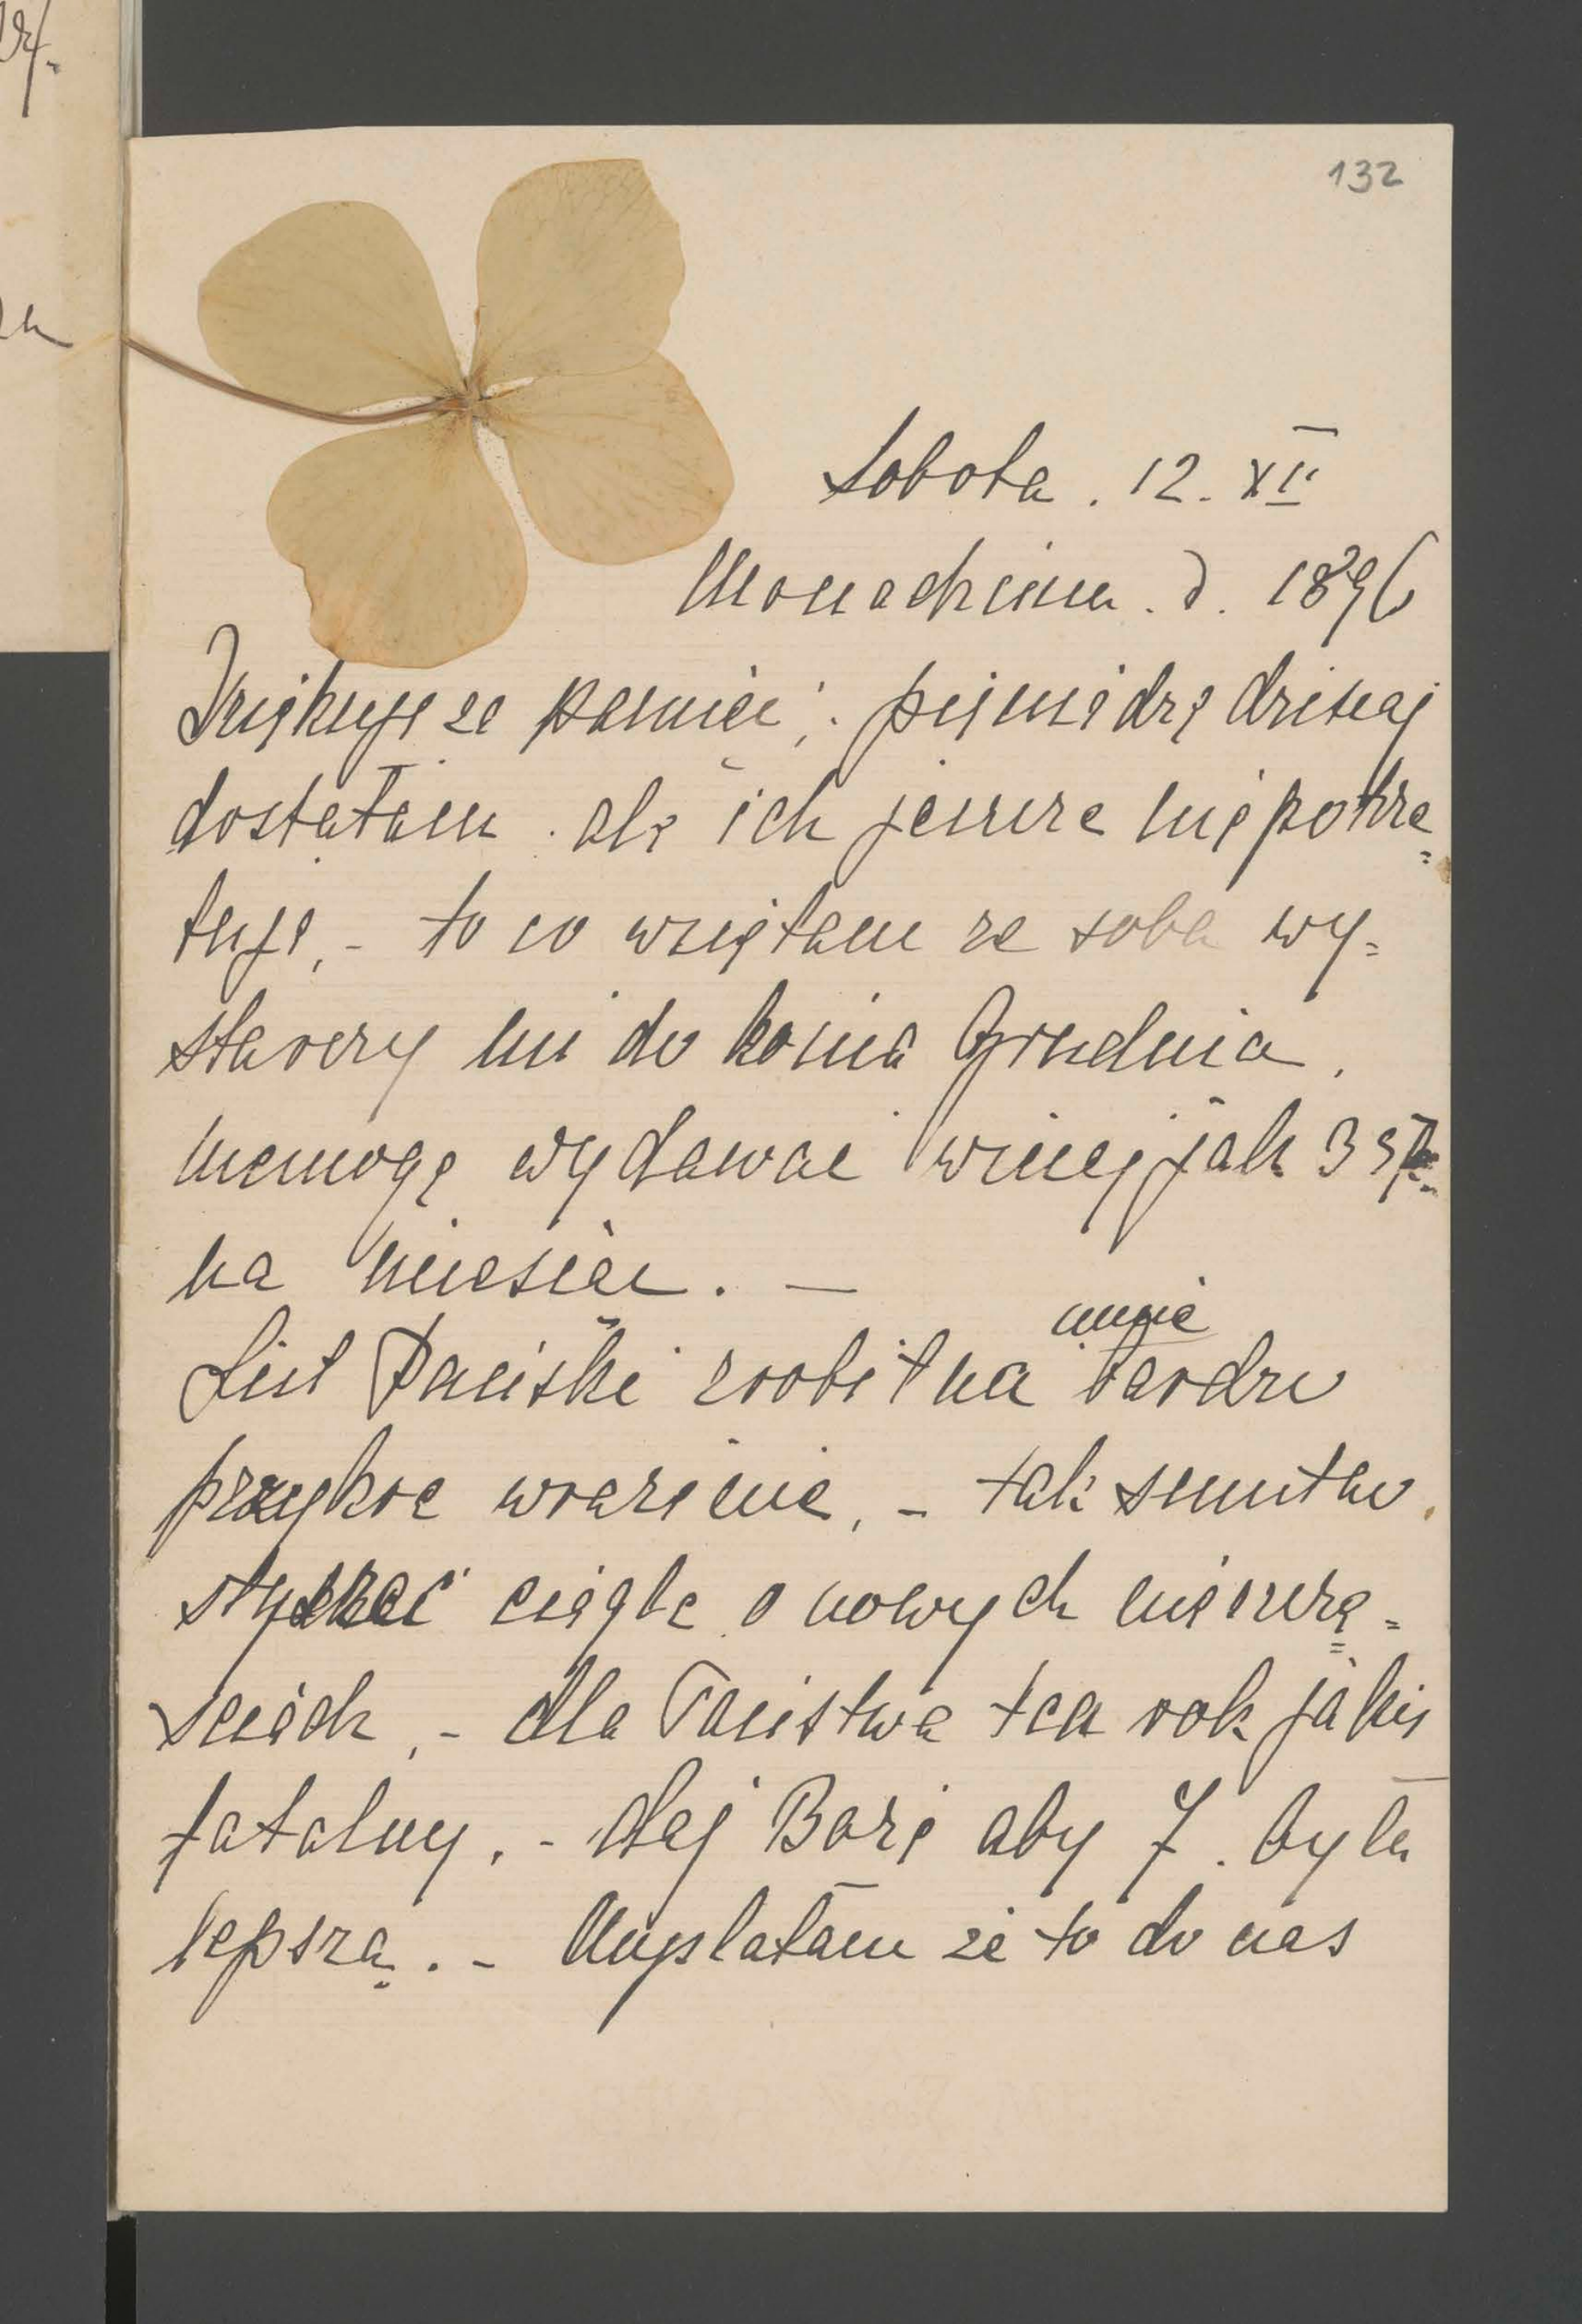 132
Sobota. 12. XII
Monachium. d. 1896
Dziękuję za pamięć; pieniądze dzisiaj
dostałam. ale ich jeszcze nie potrze=
buję, - to co wzięłam ze sobą wy=
starczy mi do końca Grudnia,
niemogę wydawać więcej jak
na miesiąc. —
List Pański zrobił na mnie bardzo
przykre wrażenie, - tak smutno
słyszeć ciągle o nowych nieszczę=
ściach, - dla Państwa ten rok jakiś
fatalny, - daj Boże aby 7. był
lepszą. - Myślałam że to do nas